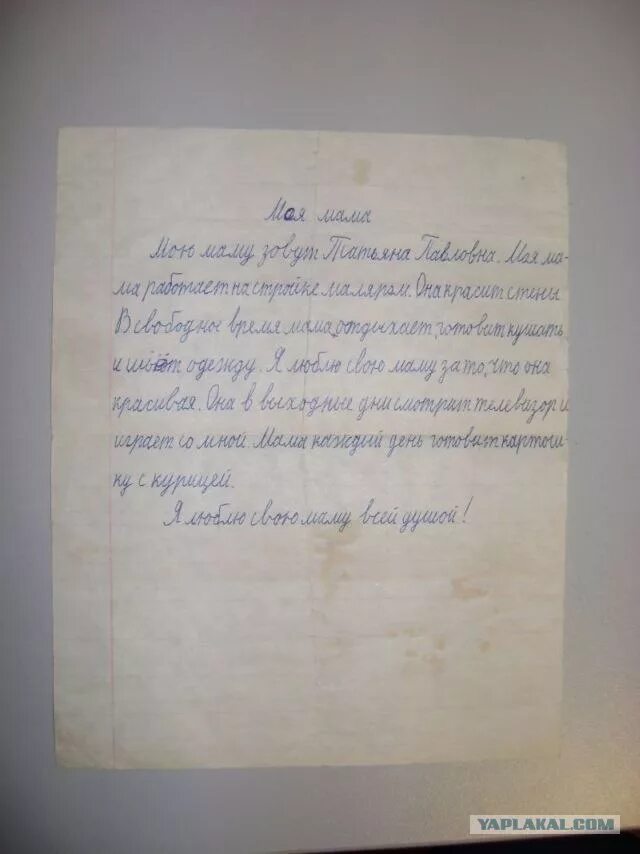 Моя мама
Мою маму зовут Татьяна Павловна. Моя ма-
ма работает на стройке маляром. Она красит стены.
В свободное время мама отдыхает, готовит кушать
и шьёт одежду. Я люблю свою маму за то, что она
красивая. Она в выходные дни смотрит телевизор и
играет со мной. Мама каждый день готовит картош-
ку с курицей.
Я люблю свою маму всей душой!
YAPLAKAL.COM